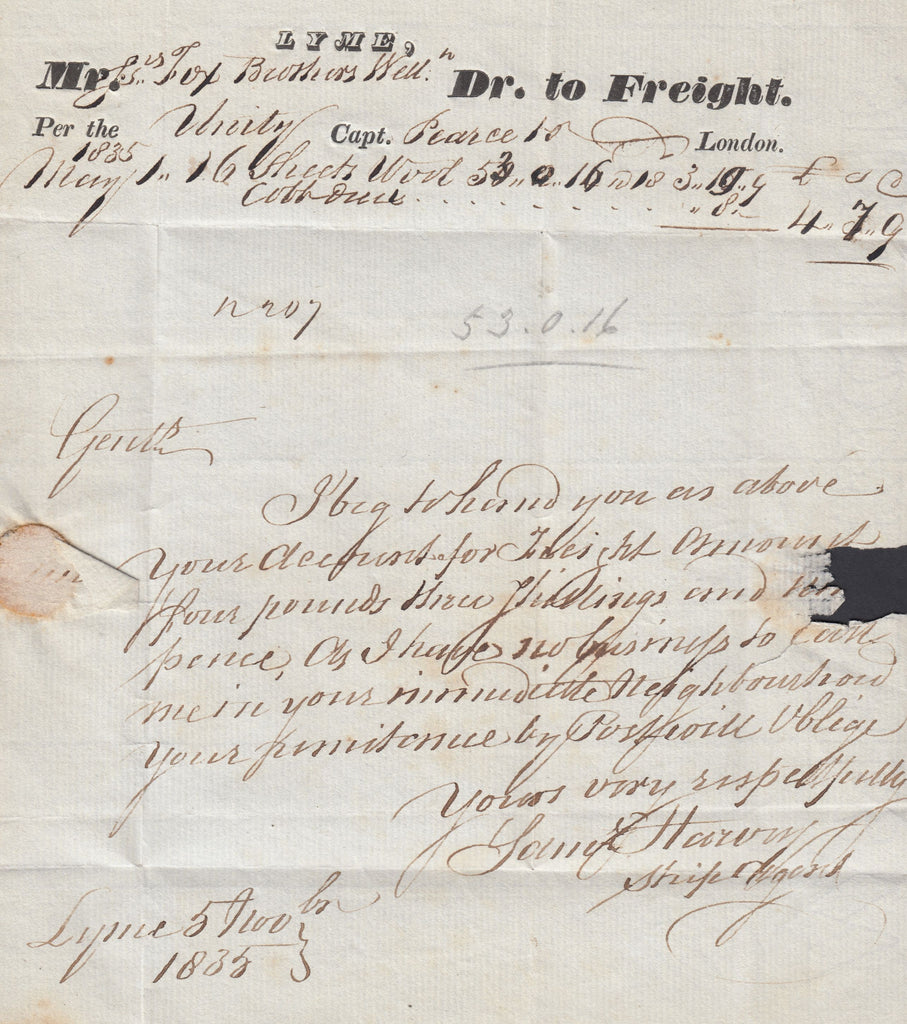 LYME,
Mr.s Fox Brothers Well.n Dr. to Freight.
Per the Unity Capt. Pearce London.
1835
May 1 16 Sheets Wool 53 0 16 18 3 19 9 £
8 4 7 9
n 207
53.0.16
Gentn
I beg to hand you as above
your account for Freight Amount
four pounds three Shillings and
pence, As I have no business to call
me in your immediate Neighbourhood
your remitance by Post will Oblige
Yours very respectfully
Saml Harvey
Ship Agent
Lyme 5 Novbr
1835